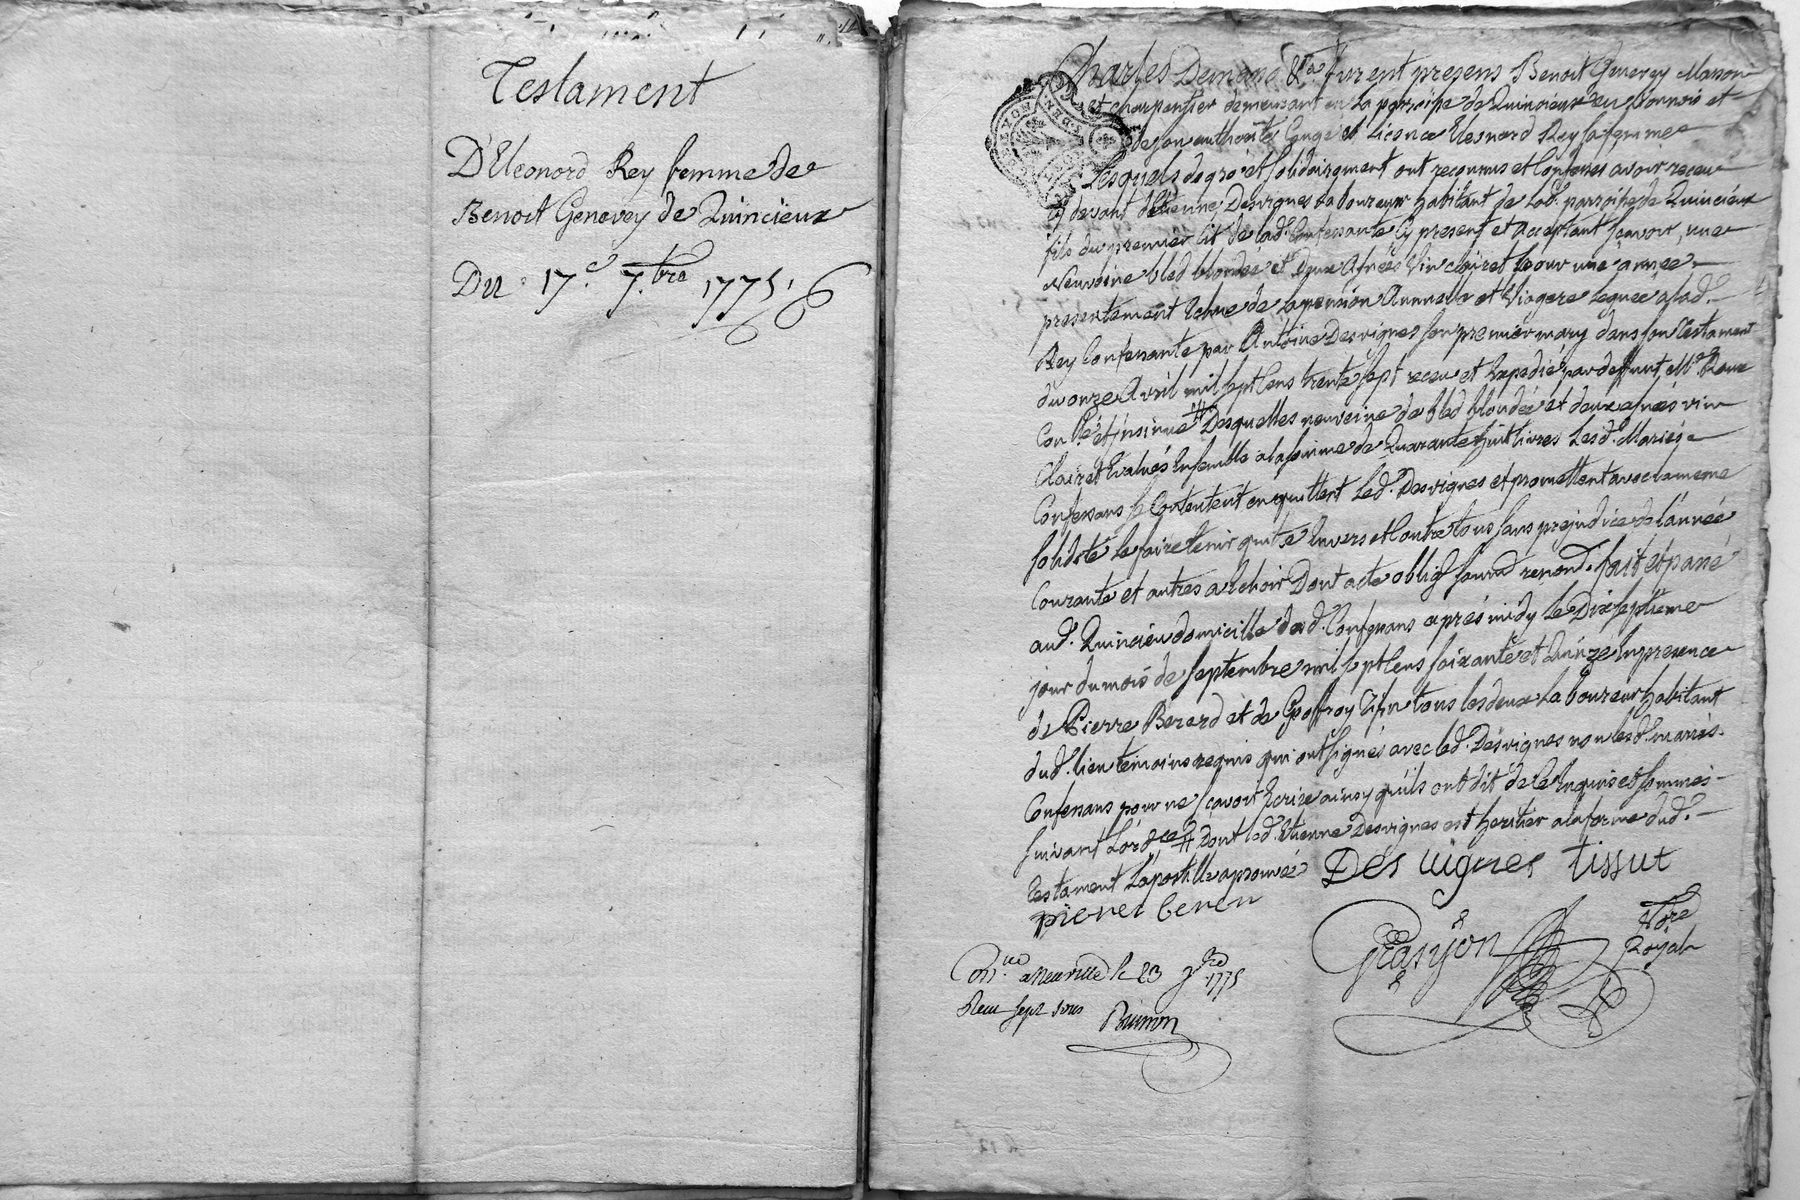 Testament
D'Eleonord Rey femme de
Benoit Genevey de Quincieux
Du 17e. 7bre 1775.
Charles Demeno &a. furent presens Benoit Genevey Masson
et charpentier demeurant en la parroisse de Quincieux en Lionnois et
de son authorité Congé et Licence Elesnard Rey sa femme
Lesquels de gré et solidairement ont reconnus et Confessés avoir receu
cy devant d'Etienne Desvignes Laboureur habitant de lad. parroisse de Quincieux
fils du premier lit de lad. Confessante cy present et acceptant sçavoir, une
Neuveine bled blondée et deux Asnées Vin clairet pour une année
presentement echue de la pension Annuelle et Viagere leguée a lad.
Rey Confessante par Antoine Desvignes son premier mary dans son Testament
du onze Avril mil sept Cens trente sept receu et Expedié par deffunt Me. Roux
Con.llé et insinué # Desquelles neuveine de bled blondée et deux asnées vin
Clairet Evalués Ensemble a la somme de Quarante huit livres Lesd. Mariés
Confessans se Contentent en quittent Led. Desvignes et promettent avec la meme
solidité le faire tenir quitte Envers et Contre tous sans prejudice de l'année
Courante et autres a Echoir Dont acte oblig. soumd. renond. fait et passé
aud. Quincieu domicille desd. Confessans aprés midy Le Dix septieme
jour du mois de septembre mil sept Cens soixante et Quinze En presence
de Pierre Berard et de Geoffroy Tissu tous les deux Laboureur habitant
dud. lieu temoins requis qui ont signés avec led. Desvignes non lesd. mariés
Confessans pour ne sçavoir Ecrire ainsy qu'ils ont dit de ce Enquis et sommés
suivant L'ordce. # Dont led. Etienne Desvignes est heritier a la forme dud.
Testament Lapostille aprouvée Des uignes tissut
pierre
Nore
Royal
Con.llé a Neuville le 23 7bre 1775
Receu sept sous